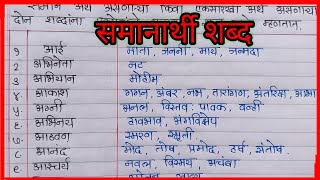 समान अर्थ असणाऱ्या किंवा एकसारखा अर्थ असणाऱ्या
दोन शब्दांना समानार्थी शब्द म्हणतात.
१ आई माता, जननी, माय, जन्मदा
२ अभिनेता नट
३ अभियान मोहीम
४ आकाश गगन, अंबर, नभ, तारांगण, अंतरिक्ष
५ अग्नी अनल, विस्तव, पावक, वन्ही
६ अभिनय हावभाव, अंगविक्षेप
७ आठवण स्मरण, स्मृती
८ आनंद मोद, तोष, प्रमोद, हर्ष, संतोष
९ आश्चर्य नवल, विस्मय, अचंबा